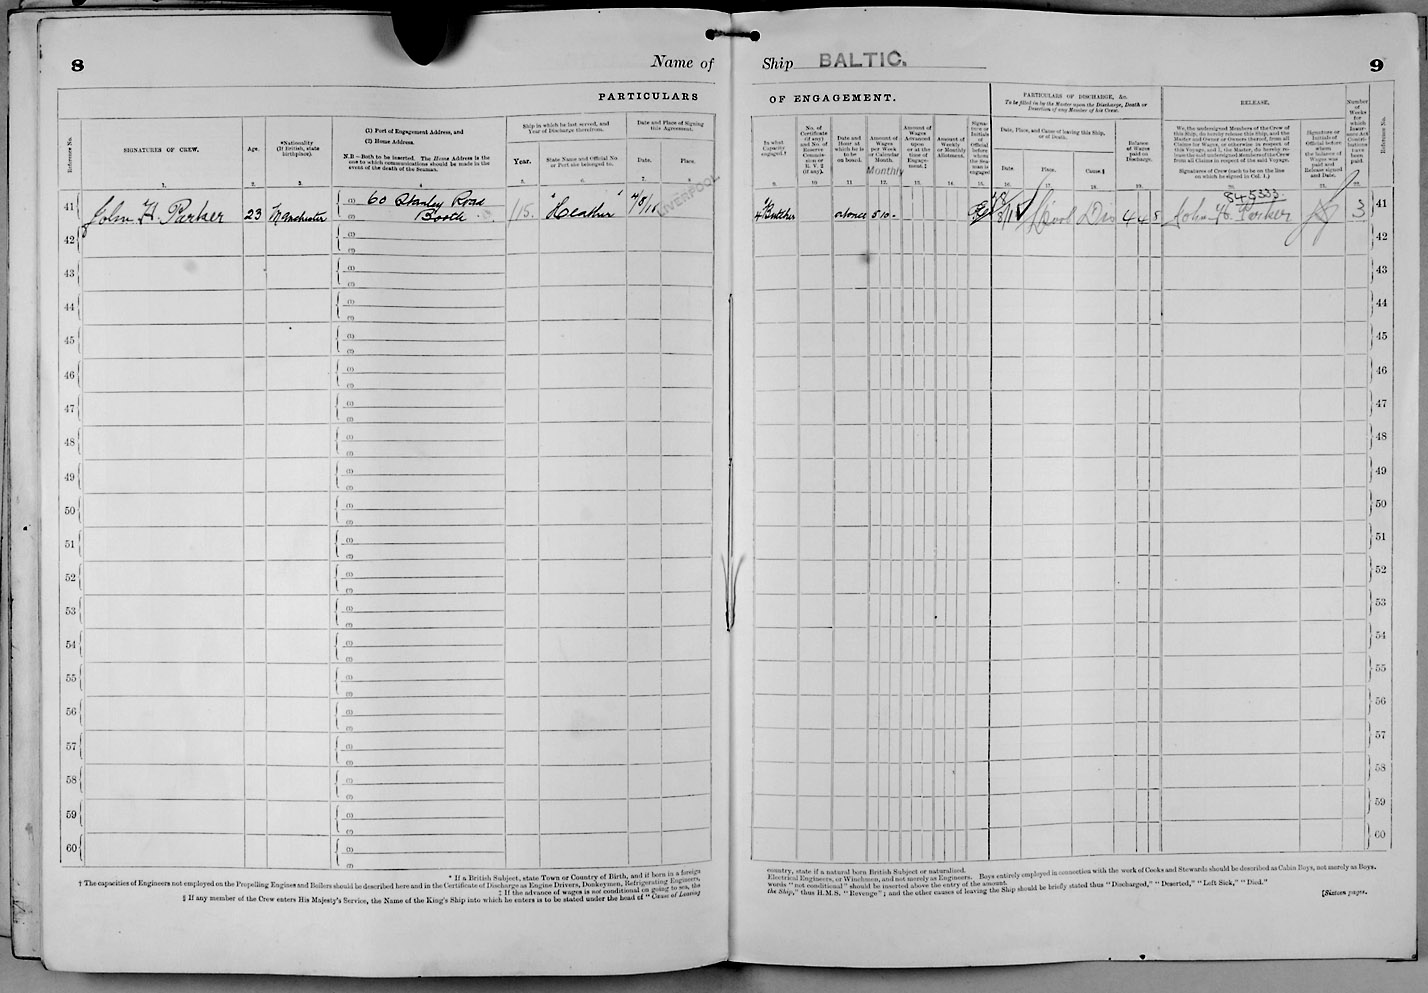 8
Name of
PARTICULARS
Reference No.
SIGNATURES OF CREW.
1.
Age.
2.
*Nationality
(If British, state
birthplace).
3.
(1) Port of Engagement Address, and
(2) Home Address.
N.B.—Both to be inserted. The Home Address is the
one to which communications should be made in the
event of the death of the Seaman.
4
Ship in which he last served, and
Year of Discharge therefrom.
Year.
5.
State Name and Official No.
or Port she belonged to.
6.
Date and Place of Signing
this Agreement.
Date.
7.
Place.
8.
41
John H. Parker
23
Manchester
(1) 60 Stanley Road
(2) Bootle
Heather
LIVERPOOL
42
43
44
45
46
47
48
49
50
51
52
53
54
55
56
57
58
59
60
* If a British Subject, state Town or Country of Birth, and if born in a foreign
† The capacities of Engineers not employed on the Propelling Engines and Boilers should be described here and in the Certificate of Discharge as Engine Drivers, Donkeymen, Refrigerating Engineers,
‡ If the advance of wages is not conditional on going to sea, the
§ If any member of the Crew enters His Majesty's Service, the Name of the King's Ship into which he enters is to be stated under the head of "Cause of Leaving
Ship BALTIC.
9
OF ENGAGEMENT.
In what
Capacity
engaged.†
9.
No. of
Certificate
(if any)
and No. of
Reserve
Commis-
sion or
R. V. 2
(if any).
10
Date and
Hour at
which he is
to be
on board.
11
Amount of
Wages
per Week
or Calendar
Month.
Monthly
12.
Amount of
Wages
Advanced
upon
or at the
time of
Engage-
ment.‡
13.
Amount of
Weekly
or Monthly
Allotment.
14.
Signa-
ture or
Initials of
Official
before
whom
the Sea-
man is
engaged
15.
PARTICULARS OF DISCHARGE, &c.
To be filled in by the Master upon the Discharge, Death or
Desertion of any Member of his Crew.
Date, Place, and Cause of leaving this Ship,
or of Death.
Date.
16.
Place.
17.
Cause.§
18.
Balance
of Wages
paid on
Discharge.
19.
RELEASE.
We, the undersigned Members of the Crew of
this Ship, do hereby release this Ship, and the
Master and Owner or Owners thereof, from all
Claims for Wages, or otherwise in respect of
this Voyage, and I, the Master, do hereby re-
lease the said undersigned Members of the Crew
from all Claims in respect of the said Voyage.
Signatures of Crew (each to be on the line
on which he signed in Col. 1.)
20.
Signature or
Initials of
Official before
whom
the balance of
Wages was
paid and
Release signed
and Date.
21.
Number
of
Weeks
for
which
Insur-
ance Act
Contri-
butions
have
been
paid.
22.
Reference No.
Butcher
at once
5 10 -
L'pool
Dis
4 4 8
845333
John H. Parker
3
41
42
43
44
45
46
47
48
49
50
51
52
53
54
55
56
57
58
59
60
country, state if a natural born British Subject or naturalised.
Electrical Engineers, or Winchmen, and not merely as Engineers. Boys entirely employed in connection with the work of Cooks and Stewards should be described as Cabin Boys, not merely as Boys.
words "not conditional" should be inserted above the entry of the amount.
the Ship," thus H.M.S. "Revenge"; and the other causes of leaving the Ship should be briefly stated thus "Discharged," "Deserted," "Left Sick," "Died."
[Sixteen pages.